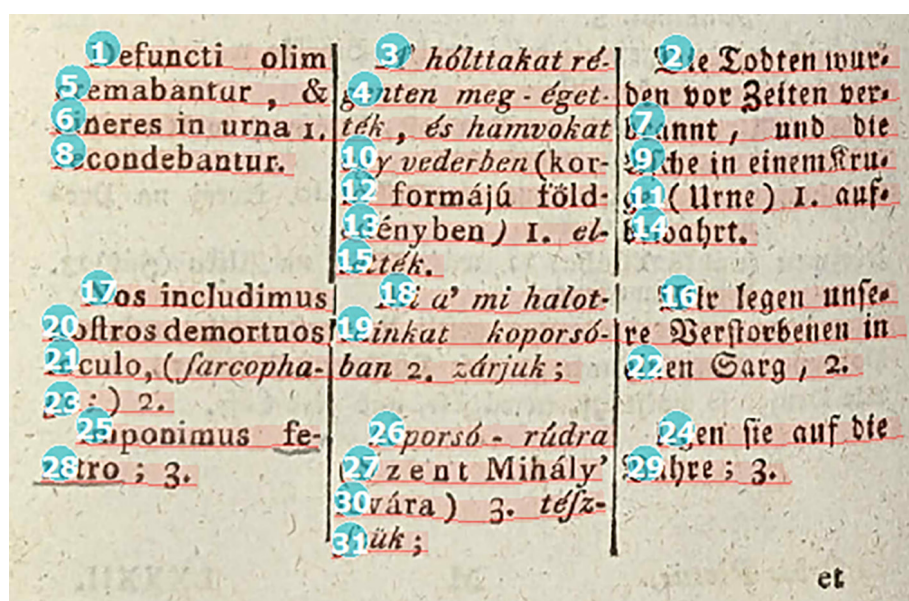 Defuncti olim
cremabantur , &
cineres in urna 1.
recondebantur.
Nos includimus
nostros demortuos
loculo, (ſarcopha-
go ; ) 2.
imponimus fe-
retro ; 3.
A' hólttakat ré-
genten meg - éget-
ték , és hamvokat
egy vederben (kor-
só formájú föld-
edényben) 1. el-
tették.
Mi a' mi halot-
tainkat koporsó-
ban 2. zárjuk ;
koporsó - rúdra
(Szent Mihály'
lovára) 3. téſz-
ſzük ;
Die Todten wur-
den vor Zeiten ver-
brannt, und die
Aſche in einem Kru-
ge (Urne) 1. auf-
bewahrt.
Wir legen unſe-
re Verſtorbenen in
einen Sarg, 2.
legen ſie auf die
Bahre ; 3.
et